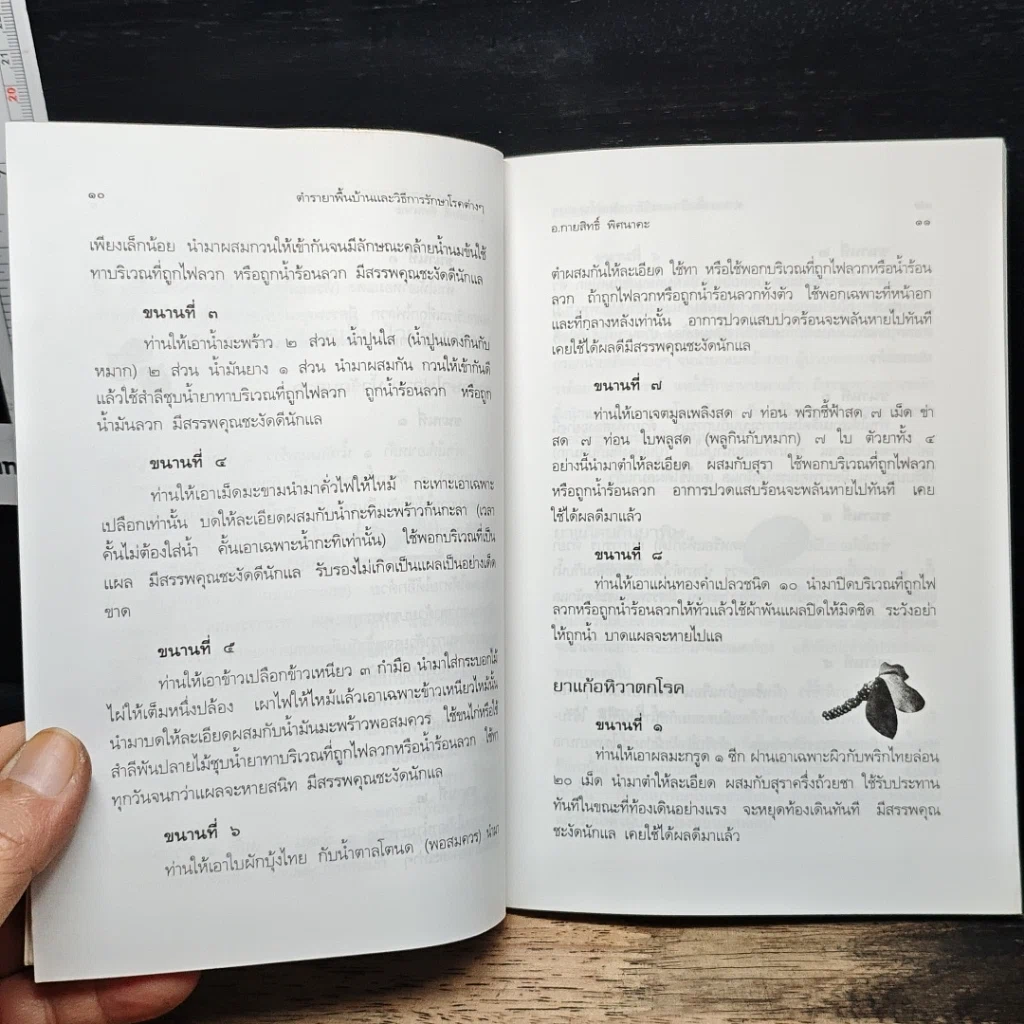 ๑๐
ตำรายาพื้นบ้านและวิธีการรักษาโรคต่างๆ
เพียงเล็กน้อย นำมาผสมกวนให้เข้ากันจนมีลักษณะคล้ายน้ำนมข้นใช้
ทาบริเวณที่ถูกไฟลวก หรือถูกน้ำร้อนลวก มีสรรพคุณชะงัดดีนักแล
ขนานที่ ๓
ท่านให้เอาน้ำมะพร้าว ๒ ส่วน น้ำปูนใส (น้ำปูนแดงกินกับ
หมาก) ๒ ส่วน น้ำมันยาง ๑ ส่วน นำมาผสมกัน กวนให้เข้ากันดี
แล้วใช้สำลีชุบน้ำยาทาบริเวณที่ถูกไฟลวก ถูกน้ำร้อนลวก หรือถูก
น้ำมันลวก มีสรรพคุณชะงัดดีนักแล
ขนานที่ ๔
ท่านให้เอาเม็ดมะขามนำมาคั่วไฟให้ไหม้ กะเทาะเอาเฉพาะ
เปลือกเท่านั้น บดให้ละเอียดผสมกับน้ำกะทิมะพร้าวก้นกะลา (เวลา
คั้นไม่ต้องใส่น้ำ คั้นเอาเฉพาะน้ำกะทิเท่านั้น) ใช้พอกบริเวณที่เป็น
แผล มีสรรพคุณชะงัดดีนักแล รับรองไม่เกิดเป็นแผลเป็นอย่างเด็ด
ขาด
ขนานที่ ๕
ท่านให้เอาข้าวเปลือกข้าวเหนียว ๓ กำมือ นำมาใส่กระบอกไม้
ไผ่ให้เต็มหนึ่งปล้อง เผาไฟให้ไหม้แล้วเอาเฉพาะข้าวเหนียวไหม้นั้น
นำมาบดให้ละเอียดผสมกับน้ำมันมะพร้าวพอสมควร ใช้ขนไก่หรือใช้
สำลีพันปลายไม้ชุบน้ำยาทาบริเวณที่ถูกไฟลวกหรือน้ำร้อนลวก ใช้ทา
ทุกวันจนกว่าแผลจะหายสนิท มีสรรพคุณชะงัดนักแล
ขนานที่ ๖
ท่านให้เอาใบผักบุ้งไทย กับน้ำตาลโตนด (พอสมควร) นำมา
อ.กายสิทธิ์ พิศนาคะ
๑๑
ตำผสมกันให้ละเอียด ใช้ทา หรือใช้พอกบริเวณที่ถูกไฟลวกหรือน้ำร้อน
ลวก ถ้าถูกไฟลวกหรือถูกน้ำร้อนลวกทั้งตัว ใช้พอกเฉพาะที่หน้าอก
และที่กลางหลังเท่านั้น อาการปวดแสบปวดร้อนจะพลันหายไปทันที
เคยใช้ได้ผลดีมีสรรพคุณชะงัดนักแล
ขนานที่ ๗
ท่านให้เอาเจตมูลเพลิงสด ๗ ท่อน พริกชี้ฟ้าสด ๗ เม็ด ข่า
สด ๗ ท่อน ใบพลูสด (พลูกินกับหมาก) ๗ ใบ ตัวยาทั้ง ๔
อย่างนี้นำมาตำให้ละเอียด ผสมกับสุรา ใช้พอกบริเวณที่ถูกไฟลวก
หรือถูกน้ำร้อนลวก อาการปวดแสบร้อนจะพลันหายไปทันที เคย
ใช้ได้ผลดีมาแล้ว
ขนานที่ ๘
ท่านให้เอาแผ่นทองคำเปลวชนิด ๑๐ นำมาปิดบริเวณที่ถูกไฟ
ลวกหรือถูกน้ำร้อนลวกให้ทั่วแล้วใช้ผ้าพันแผลปิดให้มิดชิด ระวังอย่า
ให้ถูกน้ำ บาดแผลจะหายไปแล
ยาแก้อหิวาตกโรค
ขนานที่ ๑
ท่านให้เอาผลมะกรูด ๑ ซีก ฝานเอาเฉพาะผิวกับพริกไทยล่อน
๒๐ เม็ด นำมาตำให้ละเอียด ผสมกับสุราครึ่งถ้วยชา ใช้รับประทาน
ทันทีในขณะที่ท้องเดินอย่างแรง จะหยุดท้องเดินทันที มีสรรพคุณ
ชะงัดนักแล เคยใช้ได้ผลดีมาแล้ว